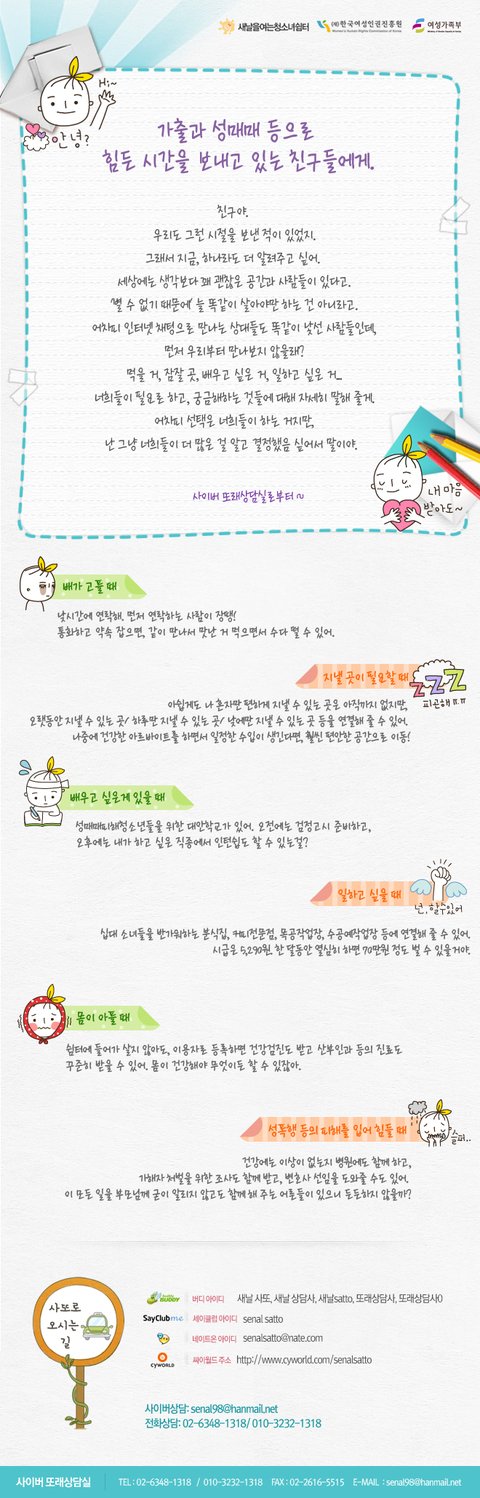 새날을여는청소녀쉼터
(재)한국여성인권진흥원
Women's Human Rights Commission of Korea
여성가족부
Hi~
안녕?
가출과 성매매 등으로
힘든 시간을 보내고 있는 친구들에게.
친구야.
우리도 그런 시절을 보낸 적이 있었지.
그래서 지금, 하나라도 더 알려주고 싶어.
세상에는 생각보다 꽤 괜찮은 공간과 사람들이 있다고.
'별 수 없기 때문에' 늘 똑같이 살아야만 하는 건 아니라고.
어차피 인터넷 채팅으로 만나는 상대들도 똑같이 낯선 사람들인데,
먼저 우리부터 만나보지 않을래?
먹을 거, 잠잘 곳, 배우고 싶은 거, 일하고 싶은 거...
너희들이 필요로 하고, 궁금해하는 것들에 대해 자세히 말해 줄게.
어차피 선택은 너희들이 하는 거지만,
난 그냥 너희들이 더 많은 걸 알고 결정했음 싶어서 말이야.
사이버 또래상담실로부터 ~
내 마음
받아도~
배가 고플 때
낮시간에 연락해. 먼저 연락하는 사람이 장땡!
통화하고 약속 잡으면, 같이 만나서 맛난 거 먹으면서 수다 떨 수 있어.
지낼 곳이 필요할 때
zzZ
피곤해 ㅠㅠ
아쉽게도 나 혼자만 편하게 지낼 수 있는 곳은 아직까지 없지만,
오랫동안 지낼 수 있는 곳/ 하루만 지낼 수 있는 곳/ 낮에만 지낼 수 있는 곳 등을 연결해 줄 수 있어.
나중에 건강한 아르바이트를 하면서 일정한 수입이 생긴다면, 훨씬 편안한 공간으로 이동!
배우고 싶은게 있을 때
성매매피해청소년들을 위한 대안학교가 있어. 오전에는 검정고시 준비하고,
오후에는 내가 하고 싶은 직종에서 인턴쉽도 할 수 있는걸?
일하고 싶을 때
넌, 할수있어
십대 소녀들을 반가워하는 분식집, 커피전문점, 목공작업장, 수공예작업장 등에 연결해 줄 수 있어.
시급은 5,290원. 한 달동안 열심히 하면 70만원 정도 벌 수 있을거야.
몸이 아플 때
쉼터에 들어가 살지 않아도, 이용자로 등록하면 건강검진도 받고 산부인과 등의 진료도
꾸준히 받을 수 있어. 몸이 건강해야 무엇이든 할 수 있잖아.
성폭행 등의 피해를 입어 힘들 때
슬퍼..
건강에는 이상이 없는지 병원에도 함께 하고,
가해자 처벌을 위한 조사도 함께 받고, 변호사 선임을 도와줄 수도 있어.
이 모든 일을 부모님께 굳이 알리지 않고도 함께 해 주는 어른들이 있으니 든든하지 않을까?
사또로
오시는
길
BUDDY 버디 아이디 새날 사또, 새날 상담사, 새날satto, 또래상담사, 또래상담사0
SayClub me 세이클럽 아이디 senal satto
네이트온 아이디 senalsatto@nate.com
CYWORLD 싸이월드 주소 http://www.cyworld.com/senalsatto
사이버상담: senal98@hanmail.net
전화상담: 02-6348-1318/ 010-3232-1318
사이버 또래상담실 TEL : 02-6348-1318 / 010-3232-1318 FAX : 02-2616-5515 E-MAIL : senal98@hanmail.net